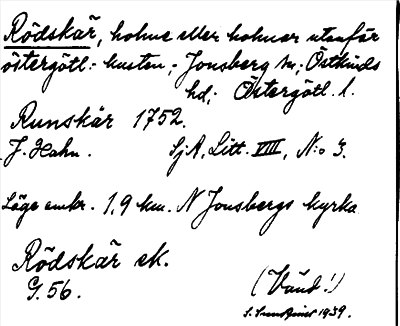 Rödskär, holme eller holmar utanför
östergötl.-kusten; Jonsberg sn; Östkinds
hd; Östergötl. l.
Runskär 1752.
J. Hahn. SjA, Litt. VIII, N:o 3.
Läge omkr. 1,9 km. N Jonsbergs kyrka
Rödskär ek.
G. 56. (Vänd!)
1939.